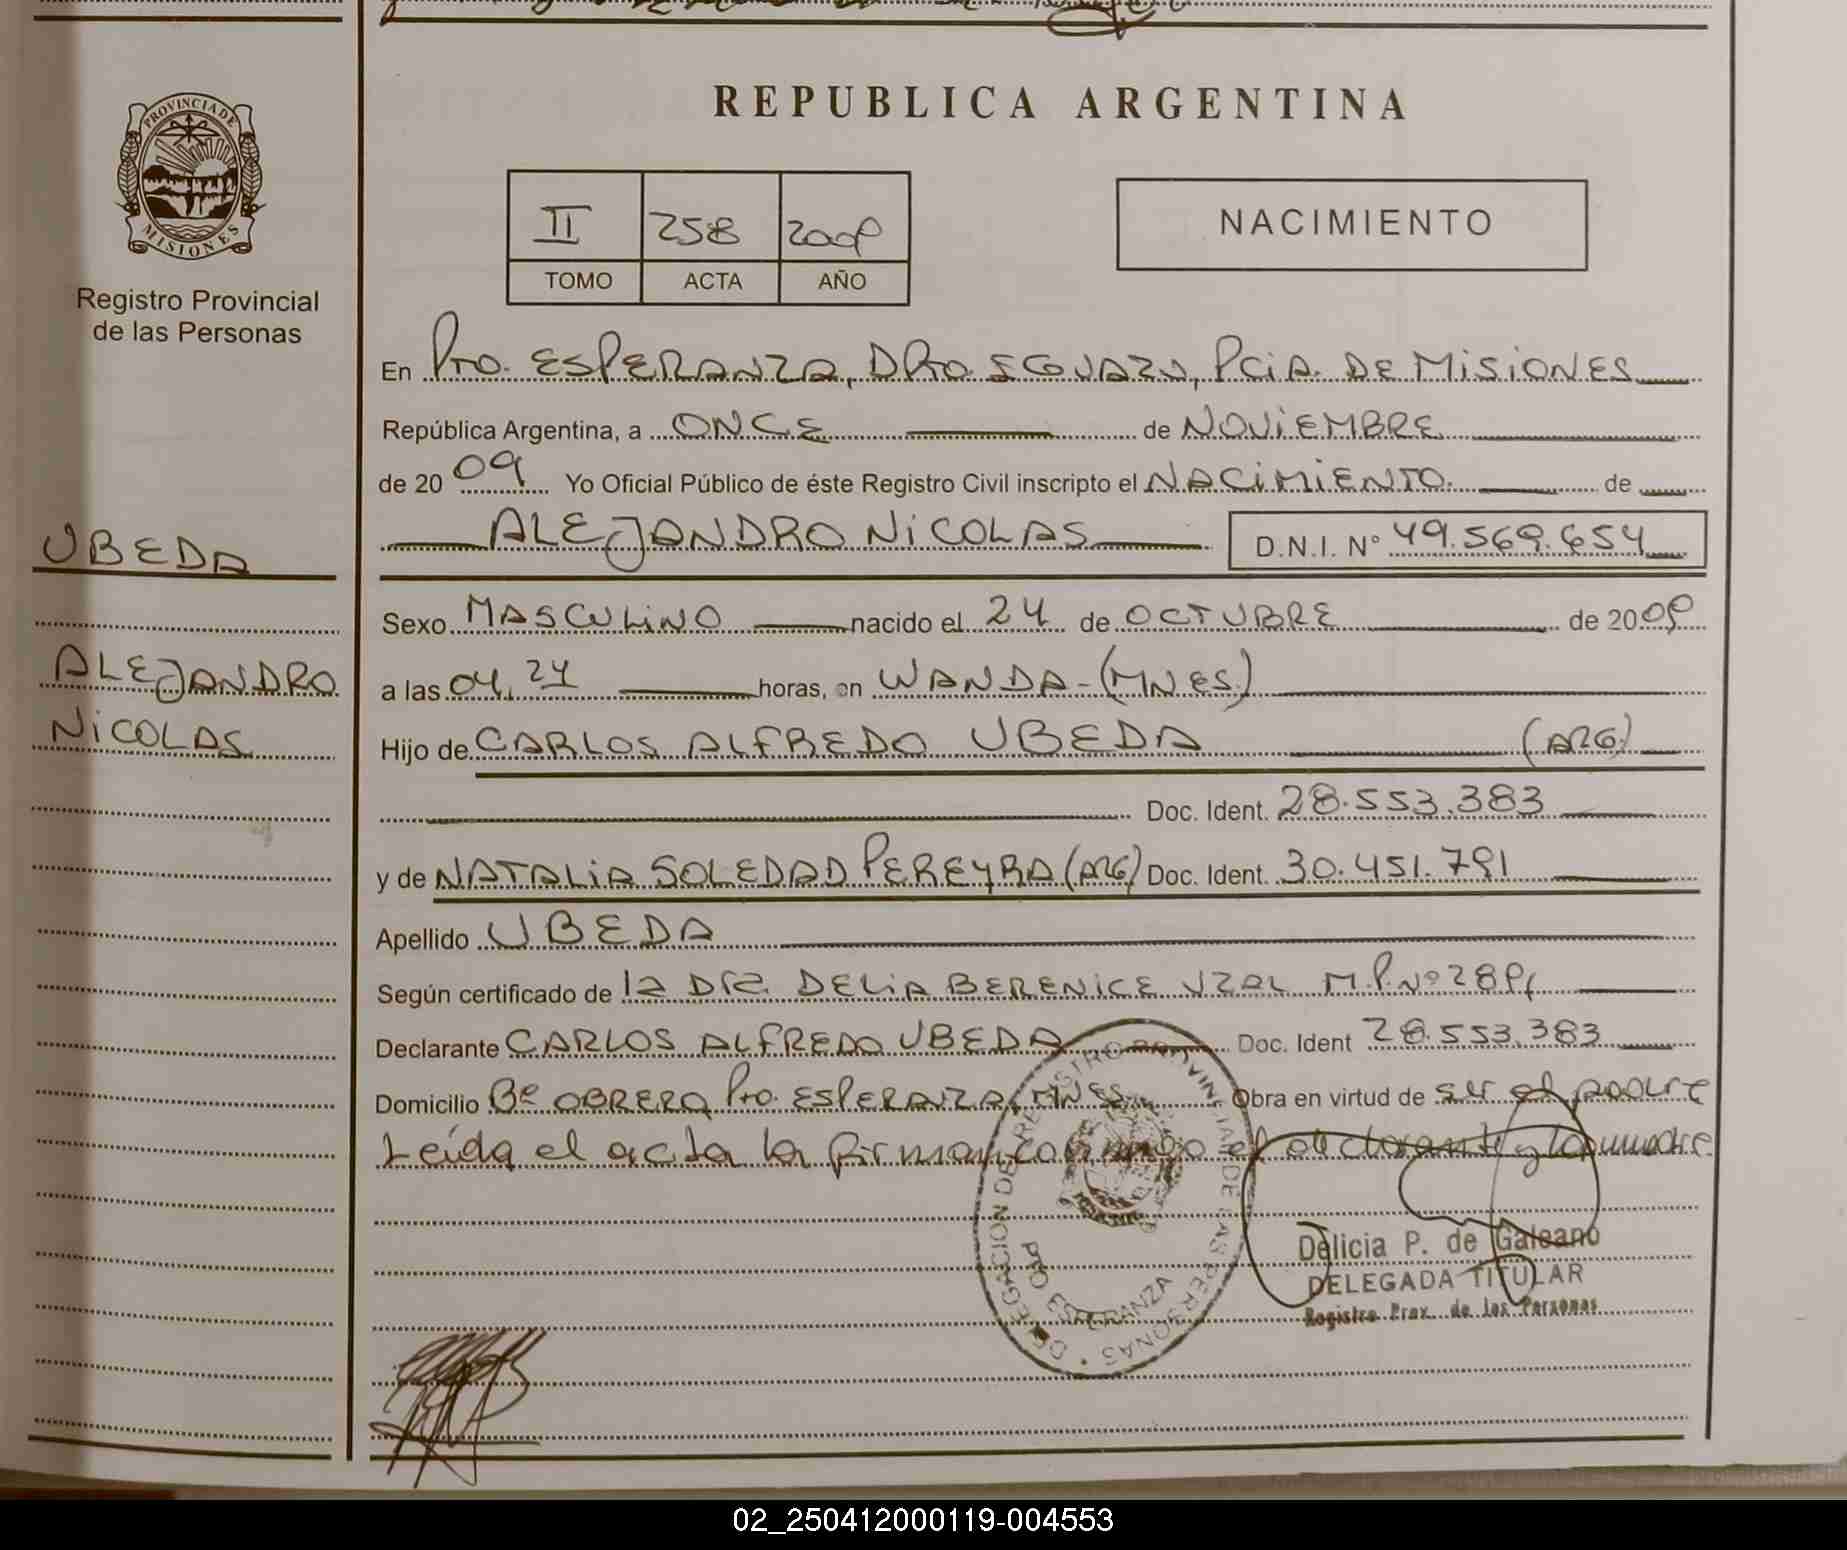 REPUBLICA ARGENTINA
PROVINCIA DE
MISIONES
Registro Provincial
de las Personas
II 258 2009
TOMO ACTA AÑO
NACIMIENTO
En Pto. ESPERANZA, DPto. IGUAZU, PCiA. DE MiSiONES
República Argentina, a ONCE de NOViEMBRE
de 20 09 Yo Oficial Público de éste Registro Civil inscripto el NACiMiENTO. de
ALEJANDRO NiCOLAS D.N.I. N° 49.569.654
UBEDA
ALEJANDRO
NiCOLAS
Sexo MASCULiNO nacido el 24 de OCTUBRE de 2009
a las 04,24 horas, en WANDA-(MNES.)
Hijo de CARLOS ALFREDO UBEDA (ARG)
Doc. Ident. 28.553.383
y de NATALiA SOLEDAD PEREYRA (ARG) Doc. Ident. 30.451.791
Apellido UBEDA
Según certificado de la DRA. DELiA BERENiCE UZAL M.P.Nº
Declarante CARLOS ALFREDO UBEDA Doc. Ident 28.553.383
Domicilio Bº OBRERO, Pto. ESPERANZA, MNES Obra en virtud de ser el padre
Leída el acta la firman conmigo el declarante y la madre
DELEGACION DEL REGISTRO PROVINCIAL DE LAS PERSONAS
PTO ESPERANZA
Delicia P. de Galeano
DELEGADA TITULAR
Registro Prov. de las Personas
02_250412000119-004553